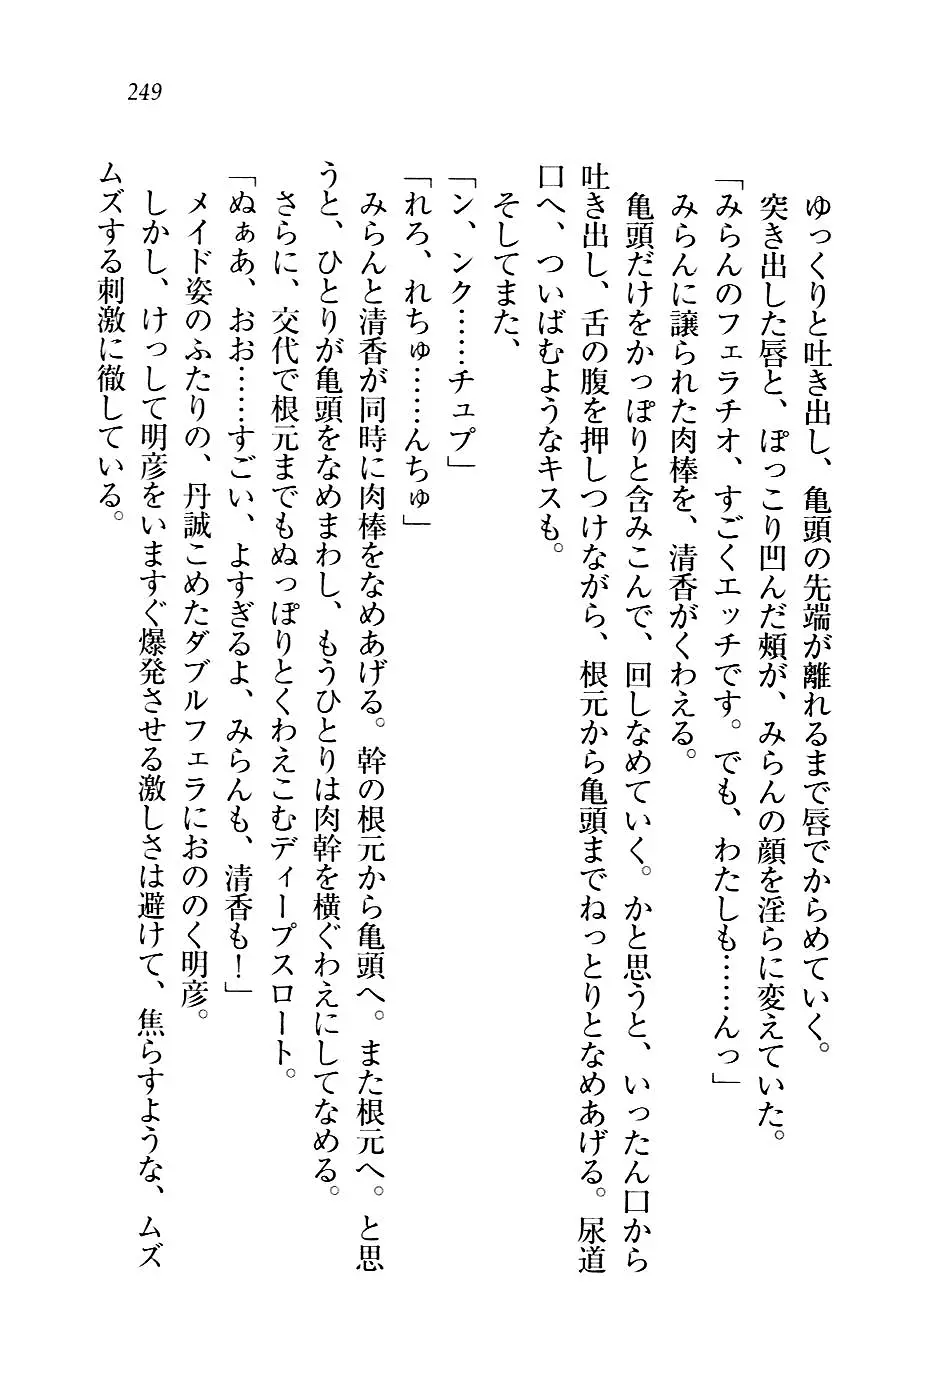 249
ゆっくりと吐き出し、亀頭の先端が離れるまで唇でからめていく。
突き出した唇と、ぽっこり凹んだ頰が、みらんの顔を淫らに変えていた。
「みらんのフェラチオ、すごくエッチです。でも、わたしも……んっ」
みらんに譲られた肉棒を、清香がくわえる。
亀頭だけをかっぽりと含みこんで、回しなめていく。かと思うと、いったん口から
吐き出し、舌の腹を押しつけながら、根元から亀頭までねっとりとなめあげる。尿道
口へ、ついばむようなキスも。
そしてまた、
「ン、ンク……チュプ」
「れろ、れちゅ……んちゅ」
みらんと清香が同時に肉棒をなめあげる。幹の根元から亀頭へ。また根元へ。と思
うと、ひとりが亀頭をなめまわし、もうひとりは肉幹を横ぐわえにしてなめる。
さらに、交代で根元までもぬっぽりとくわえこむディープスロート。
「ぬぁあ、おお……すごい、よすぎるよ、みらんも、清香も!」
メイド姿のふたりの、丹誠こめたダブルフェラにおののく明彦。
しかし、けっして明彦をいますぐ爆発させる激しさは避けて、焦らすような、ムズ
ムズする刺激に徹している。